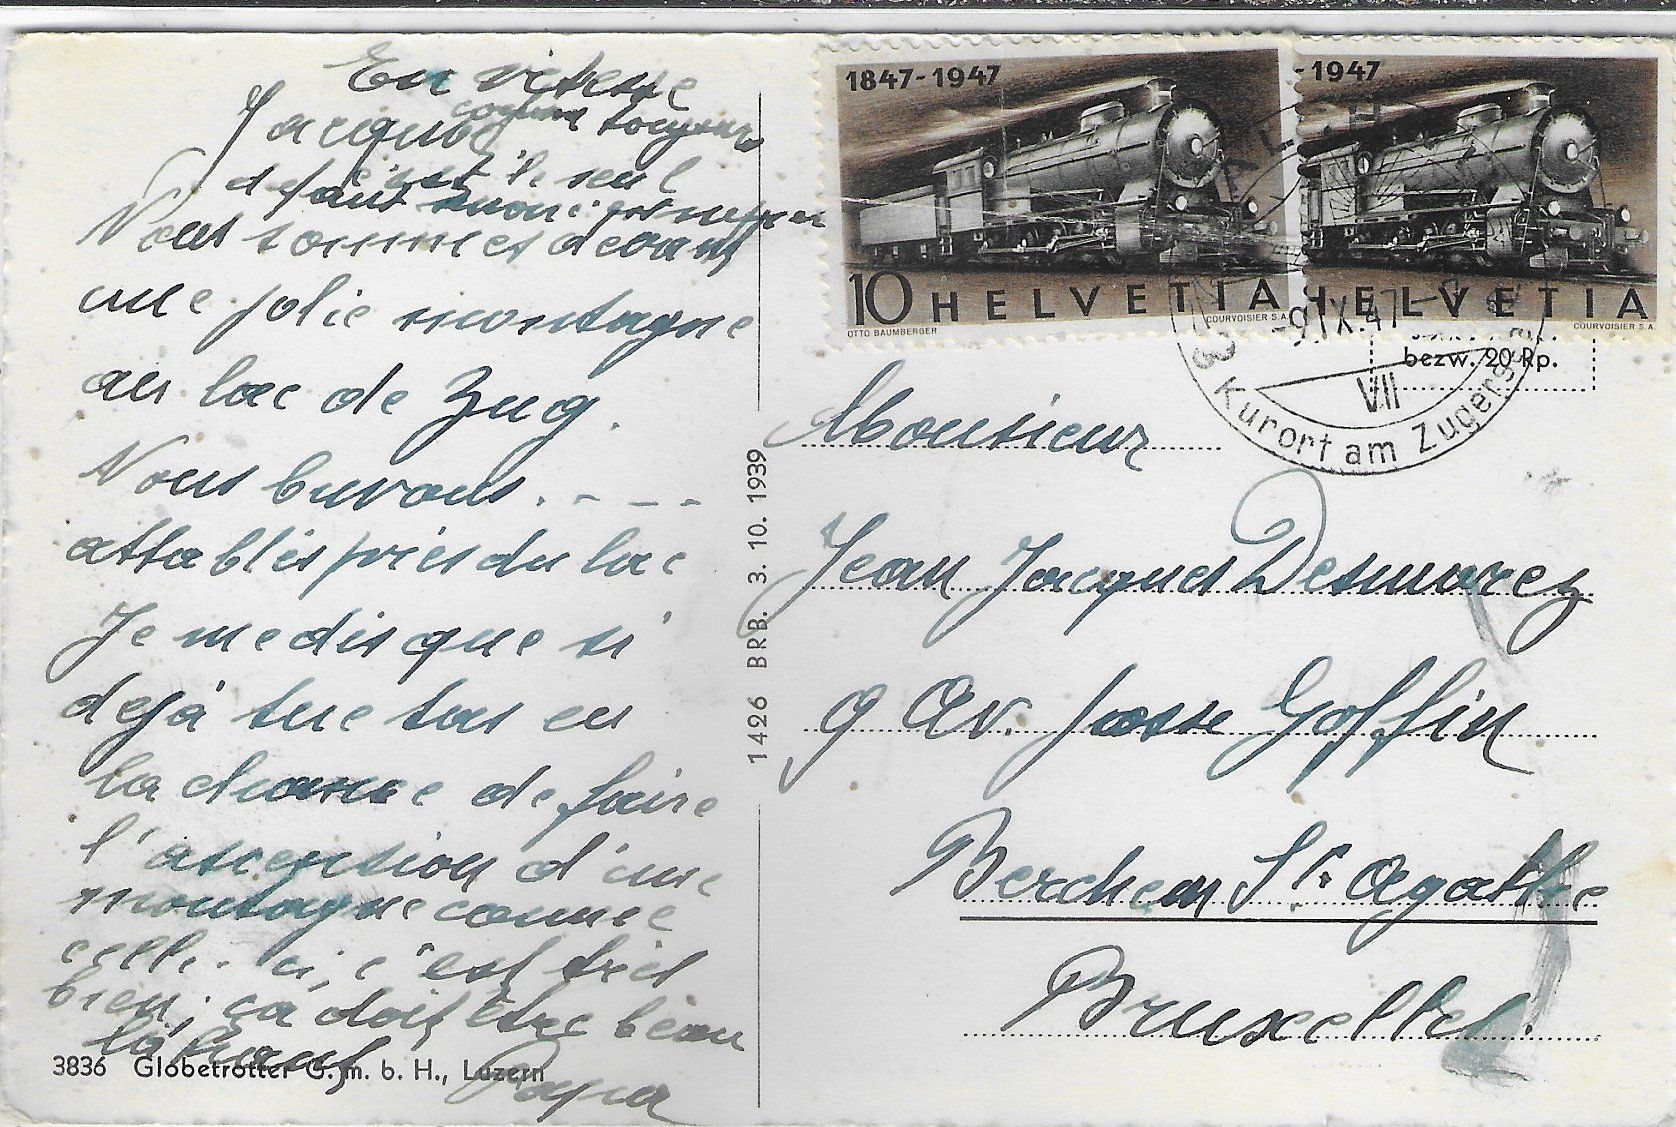 En vitesse
Jacques comme toujours
c'est le seul
défaut
Nous sommes devant
une jolie montagne
au lac de Zug.
Nous buvons. - - -
attablés près du lac
Je me dis que si
dejà tu as eu
la chance de faire
l'ascension d'une
montagne comme
celle-ci, c'est très
bien, ça doit être beau
là haut
Papa
3836 Globetrotter G. m. b. H., Luzern
1426 BRB. 3. 10. 1939
1847-1947
10 HELVETIA
OTTO BAUMBERGER
COURVOISIER S.A.
-1947
HELVETIA
COURVOISIER S.A.
-9.IX.47-
VII
Kurort am Zugersee
bezw. 20 Rp.
Monsieur
Jean Jacques Desmarez
9 Av. Josse Goffin
Berchem St. Agathe
Bruxelles.